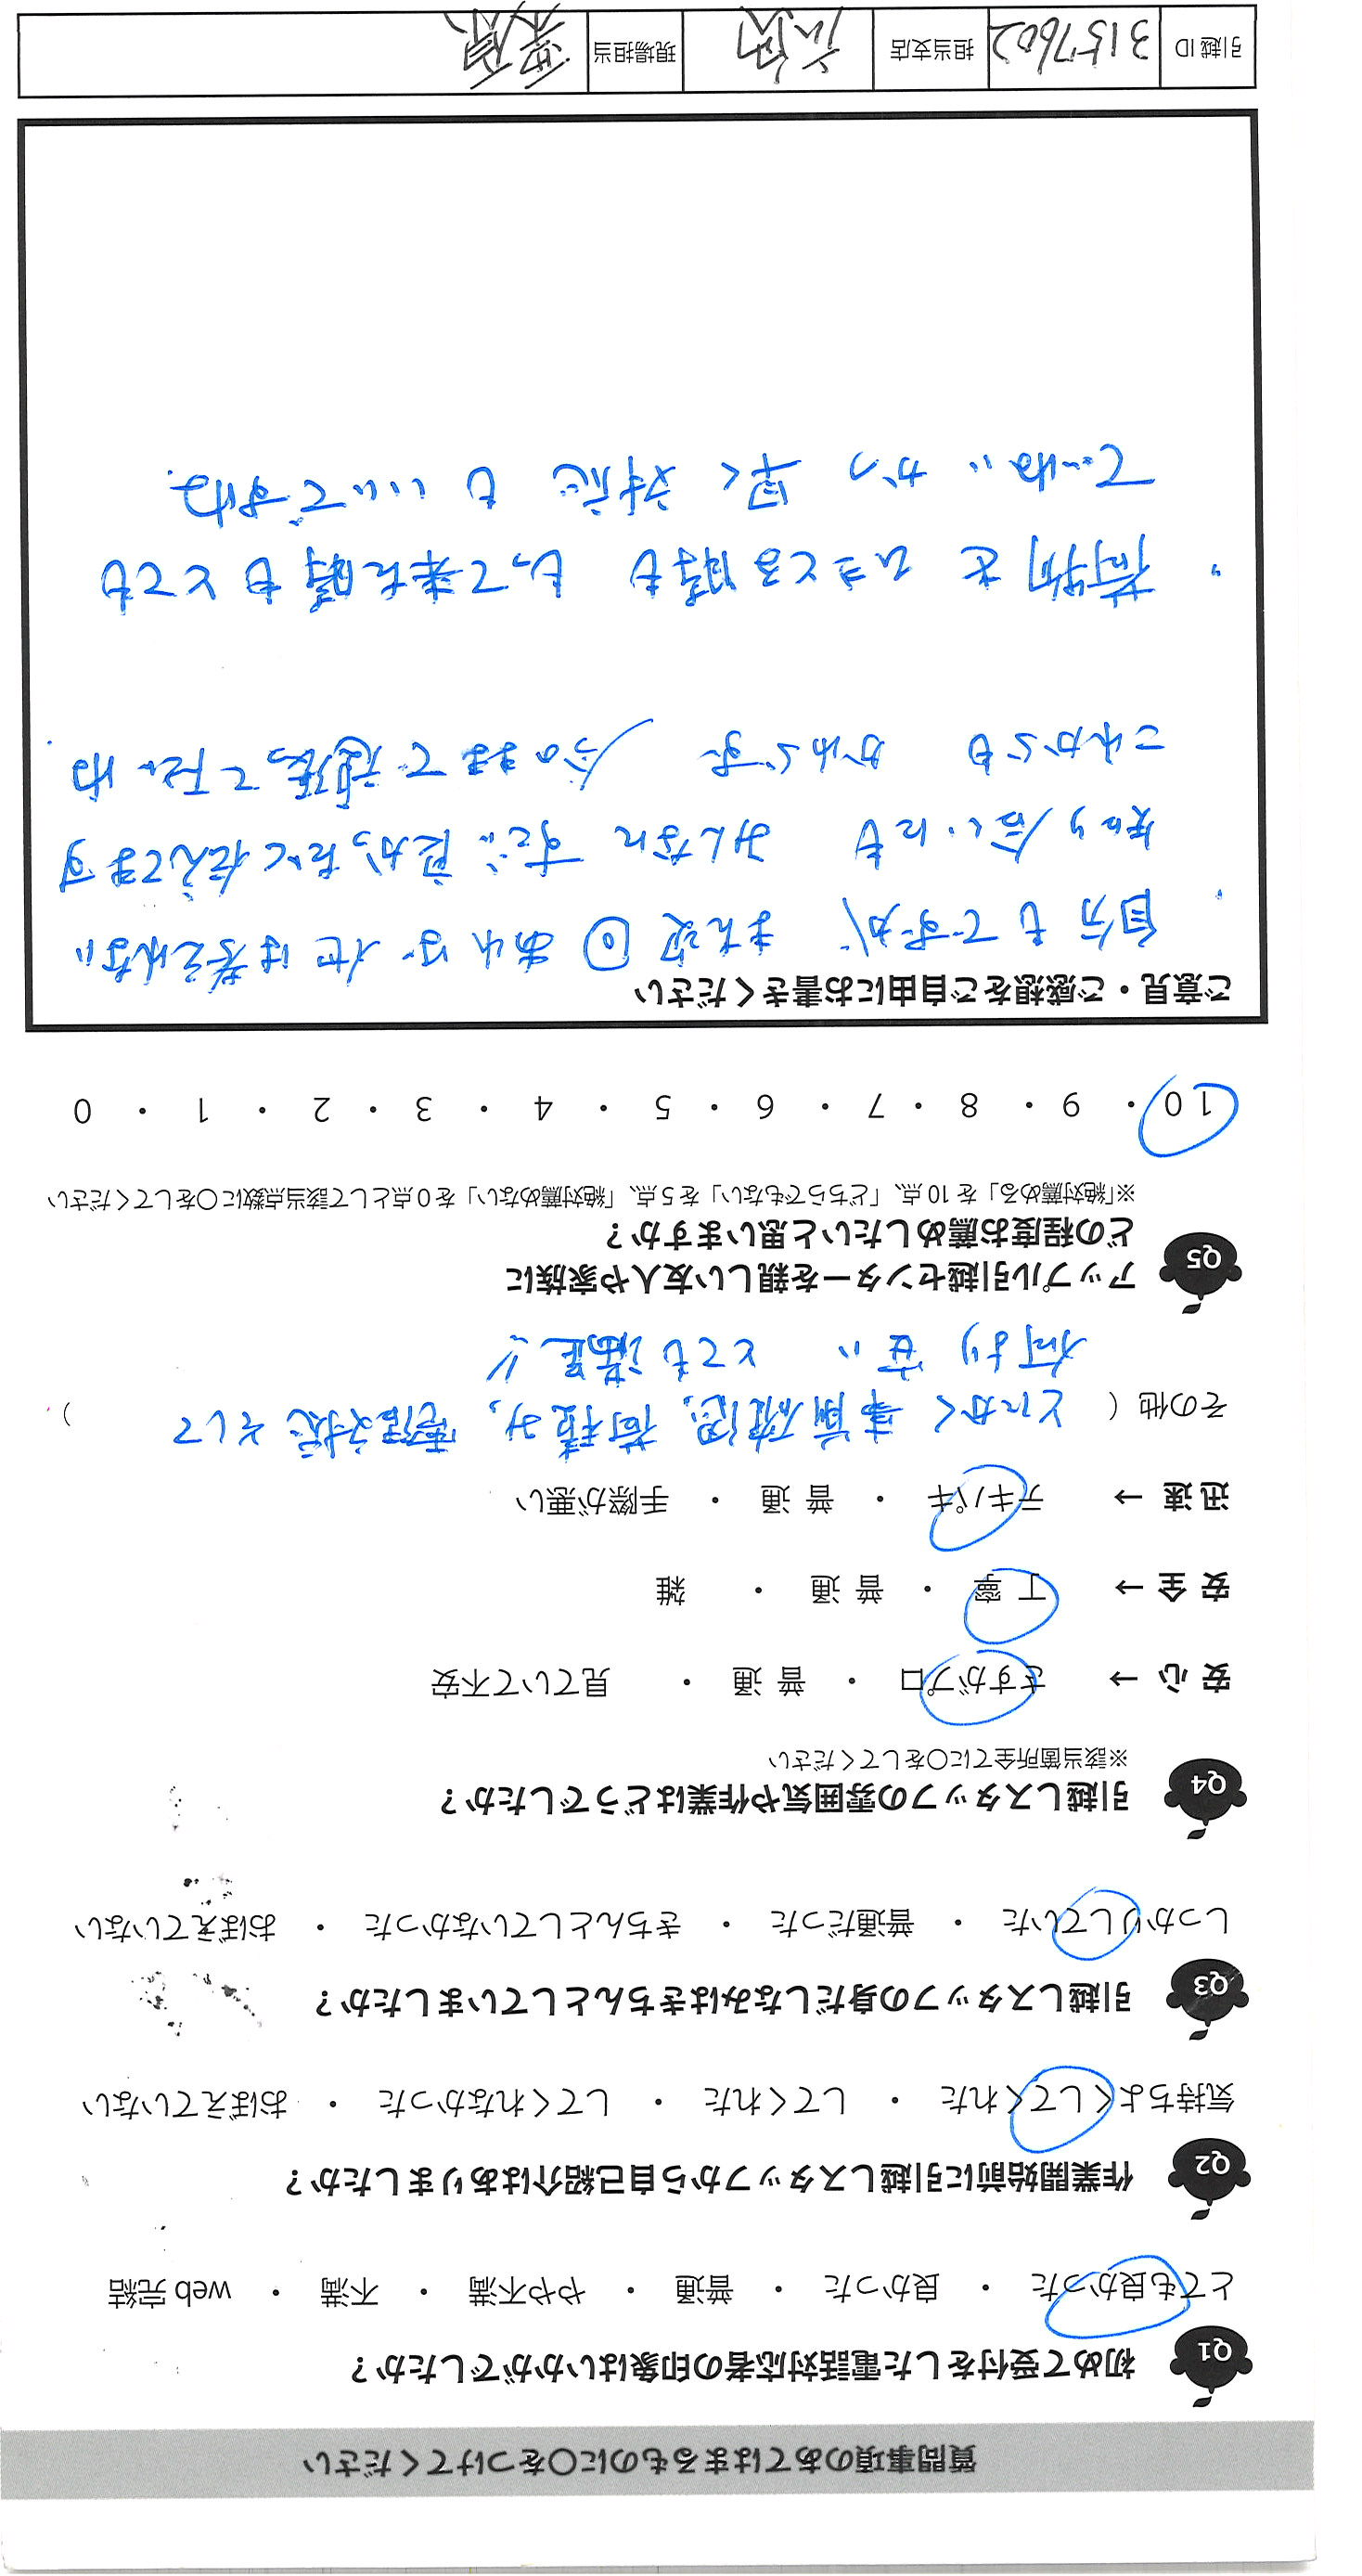 質問事項のあてはまるものに〇をつけてください
Q1 初めて受付をした電話対応者の印象はいかがでしたか？
とても良かった ・ 良かった ・ 普通 ・ やや不満 ・ 不満 ・ web 完結
Q2 作業開始前に引越しスタッフから自己紹介はありましたか？
気持ちよくしてくれた ・ してくれた ・ してくれなかった ・ おぼえていない
Q3 引越しスタッフの身だしなみはきちんとしていましたか？
しっかりしていた ・ 普通だった ・ きちんとしていなかった ・ おぼえていない
Q4 引越しスタッフの雰囲気や作業はどうでしたか？
※該当箇所全てに〇をしてください
安 心 → さすがプロ ・ 普 通 ・ 見ていて不安
安 全 → 丁 寧 ・ 普 通 ・ 雑
迅 速 → テキパキ ・ 普 通 ・ 手際が悪い
その他（ とにかく 事前確認, 荷積み, 電話対応 そして ）
何より 安い とても満足!!
Q5 アップル引越センターを親しい友人や家族に
どの程度お薦めしたいと思いますか？
※「絶対薦める」を 10 点、「どちらでもない」を 5 点、「絶対薦めない」を 0 点として該当点数に〇をしてください
10 ・ 9 ・ 8 ・ 7 ・ 6 ・ 5 ・ 4 ・ 3 ・ 2 ・ 1 ・ 0
ご意見・ご感想をご自由にお書きください
・自分もですが また次回あれば 他は考えれない
知り合いにも みんなに すごい良かったと伝えてます
これからも かわらず 今のままで 頑張って下さいね.
・荷物を まとる時も もって来た時もとても
ていねい かつ 早く 対応も いいですね.
引越 ID 3157602 担当支店 現場担当